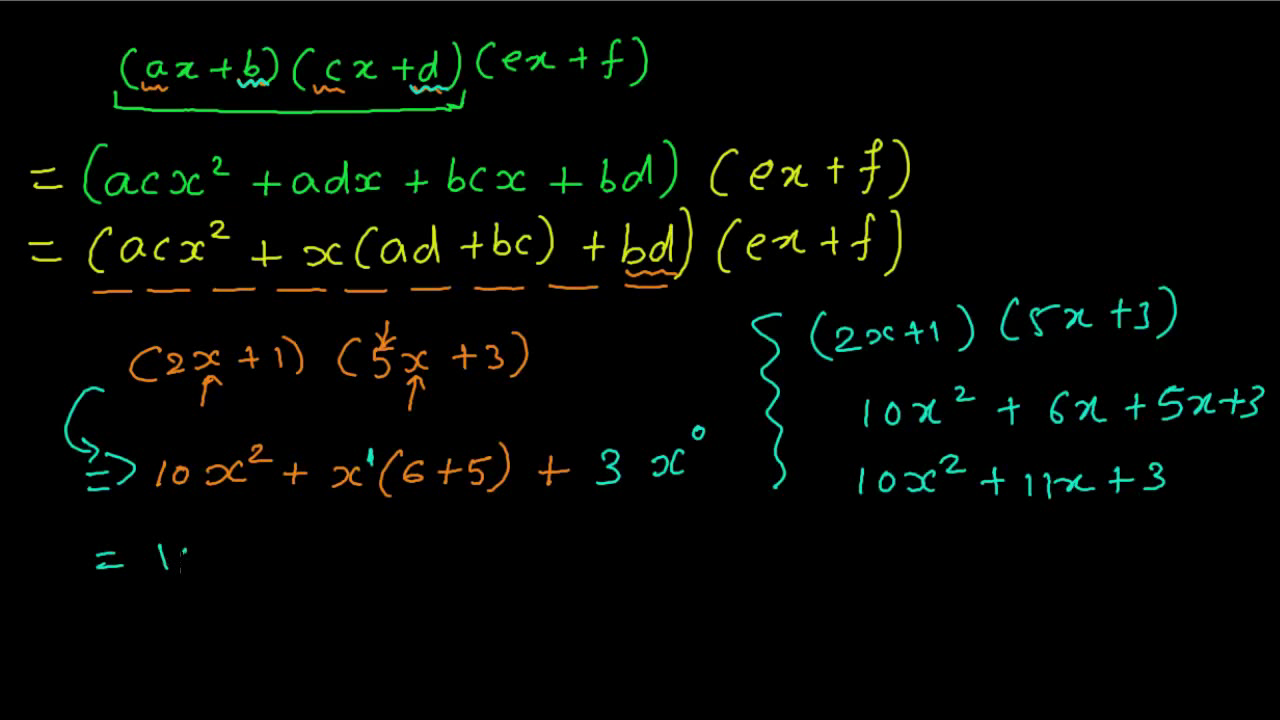 (ax+b)(cx+d)(ex+f)
= (acx² + adx + bcx + bd) (ex+f)
= (acx² + x(ad+bc) + bd) (ex+f)
(2x+1) (5x+3)
=> 10x² + x¹(6+5) + 3 x⁰
= 1
(2x+1) (5x+3)
10x² + 6x + 5x+3
10x² + 11x + 3